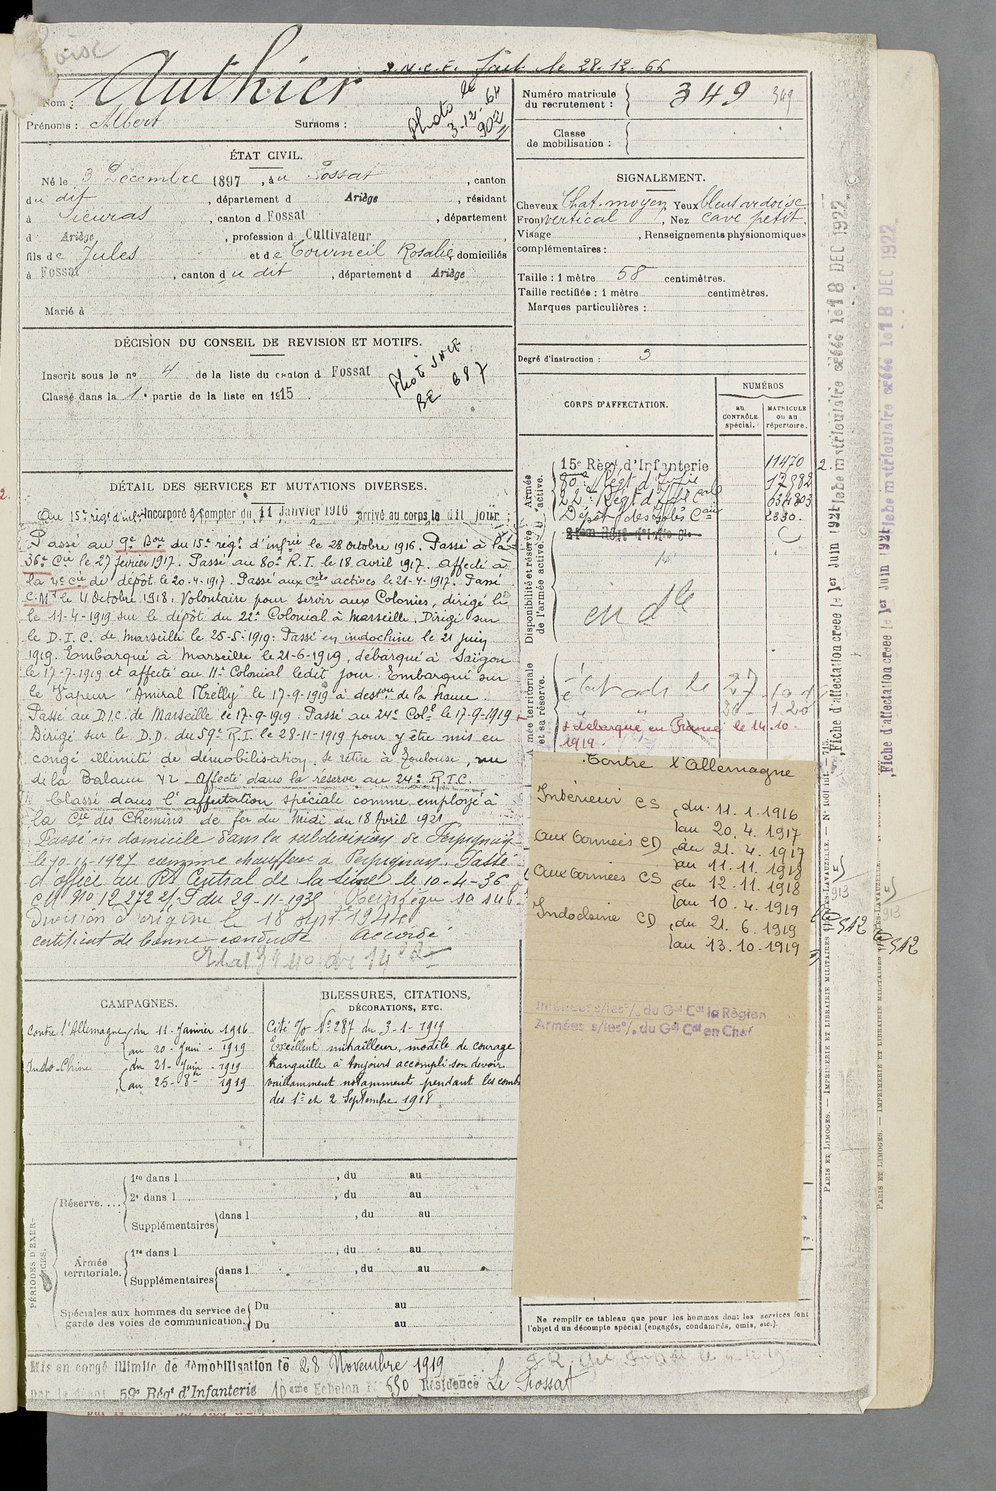 Authier
S.N.C.F. fait le 28.12.66
Nom :
Prénoms : Albert Surnoms :
Photo le
3.12.64
902
Numéro matricule
du recrutement : 349 349
Classe
de mobilisation :
ÉTAT CIVIL.
Né le 3 Décembre 1897, à u Fossat, canton
du dit, département d Ariège, résidant
à Sieuras, canton d Fossat, département
d Ariège, profession d Cultivateur
fils de Jules et de Tourneil Rosalie, domiciliés
à Fossat, canton du dit, département d Ariège
Marié à
SIGNALEMENT.
Cheveux Chat. moyen, Yeux bleus ardoise
Front vertical, Nez cave petit.
Visage , Renseignements physionomiques
complémentaires :
Taille : 1 mètre 58 centimètres.
Taille rectifiée : 1 mètre centimètres.
Marques particulières :
Degré d'instruction : 3
DÉCISION DU CONSEIL DE REVISION ET MOTIFS.
Inscrit sous le no 4 de la liste du canton d Fossat
Classé dans la 1. partie de la liste en 1915.
Photo SNCF
BE 687
CORPS D'AFFECTATION.
NUMÉROS
au CONTRÔLE spécial.
MATRICULE ou au répertoire.
Armée active.
15e Régt d'Infanterie 11470
80e Régt d'Infie
22e Régt d'Inf Cole
Dépôt des Isolés Caux 2330.
Disponibilité et réserve de l'armée active.
en dle
Armée territoriale et sa réserve.
+ débarqué en France le 14-10-
1919.
DÉTAIL DES SERVICES ET MUTATIONS DIVERSES.
Au 15e rég. d'inf. Incorporé à compter du 11 Janvier 1916 arrivé au corps le dit jour
Passé au 9e Bon du 15e régt d'infrie le 28 octobre 1916. Passé à la
36e Cie le 27 février 1917. Passé au 80e R.I. le 18 avril 1917. Affecté à
la 4e Cie de dépôt le 20-4-1917. Passé aux Cies actives le 21-4-1917. Passé
C.M. le 4 Octobre 1918. Volontaire pour servir aux Colonies, dirigé
le 11-4-1919 sur le dépôt du 22e Colonial à Marseille. Dirigé sur
le D.I.C. de Marseille le 25-5-1919. Passé en indochine le 21 juin
1919. Embarqué à Marseille le 21-6-1919, débarqué à Saïgon
le 17-7-1919 et affecté au 11e Colonial ledit jour. Embarqué sur
le Vapeur "Amiral" le 17-9-1919 à destion de la France.
Passé au D.I.C. de Marseille le 17-9-1919. Passé au 24e Colal le 17-9-1919
Dirigé sur le D.D. du 59e R.I. le 28-11-1919 pour y être mis en
congé illimité de démobilisation, se retire à Toulouse, rue
de la Balance 42. Affecté dans la réserve au 24e R.I.C.
Classé dans l'affectation spéciale comme employé à
la Cie des Chemins de fer du Midi du 18 Avril 1921
Passé en domicile dans la subdivision de Perpignan
comme chauffeur à Perpignan. Passé
d'office au Rt Central de la Seine le 10-4-36
du 29-11-938
division d'origine le 18 sept 1940
certificat de bonne conduite Accordé
Contre l'Allemagne
Intérieur CS du 11.1.1916
au 20.4.1917
Aux Armées CD du 21.4.1917
au 11.11.1918
Aux Armées CS du 12.11.1918
au 10.4.1919
Indochine CD du 21.6.1919
au 13.10.1919
Intérieur s/les o/. du Gal Cdt la Région
Armées s/les o/. du Gal Cdt en Chef
CAMPAGNES.
Contre l'Allemagne du 11 Janvier 1916
au 20 Juin 1919
Indo-Chine du 21 Juin 1919
au 25-8bre 1919
BLESSURES, CITATIONS,
DÉCORATIONS, ETC.
Cité No 287 du 3-1-1919
Excellent mitrailleur, modèle de courage
tranquille à toujours accompli son devoir
vaillamment notamment pendant les comb
des 1er et 2 Septembre 1918
PÉRIODES D'EXERCICES.
Réserve....
1re dans l , du au
2e dans l , du au
Supplémentaires dans l , du au
Armée territoriale.
1re dans l , du au
Supplémentaires dans l , du au
Spéciales aux hommes du service de
garde des voies de communication.
Du au
Du au
Ne remplir ce tableau que pour les hommes dont les services font
l'objet d'un décompte spécial (engagés, condamnés, omis, etc.).
Mis en congé illimité de démobilisation le 28 Novembre 1919
par le dépôt 59e Régt d'Infanterie 10eme Echelon No 550 Résidence Le Fossat
Fiche d'affectation créée le 1er Juin 1921
Fiche matriculaire créée le 18 DEC 1922
Fiche d'affectation créée le 1er Juin 1921
Fiche matriculaire créée le 18 DEC 1922
PARIS ET LIMOGES. — IMPRIMERIE ET LIBRAIRIE MILITAIRES CHARLES-LAVAUZELLE.
PARIS ET LIMOGES. — IMPRIMERIE ET LIBRAIRIE MILITAIRES
913
913